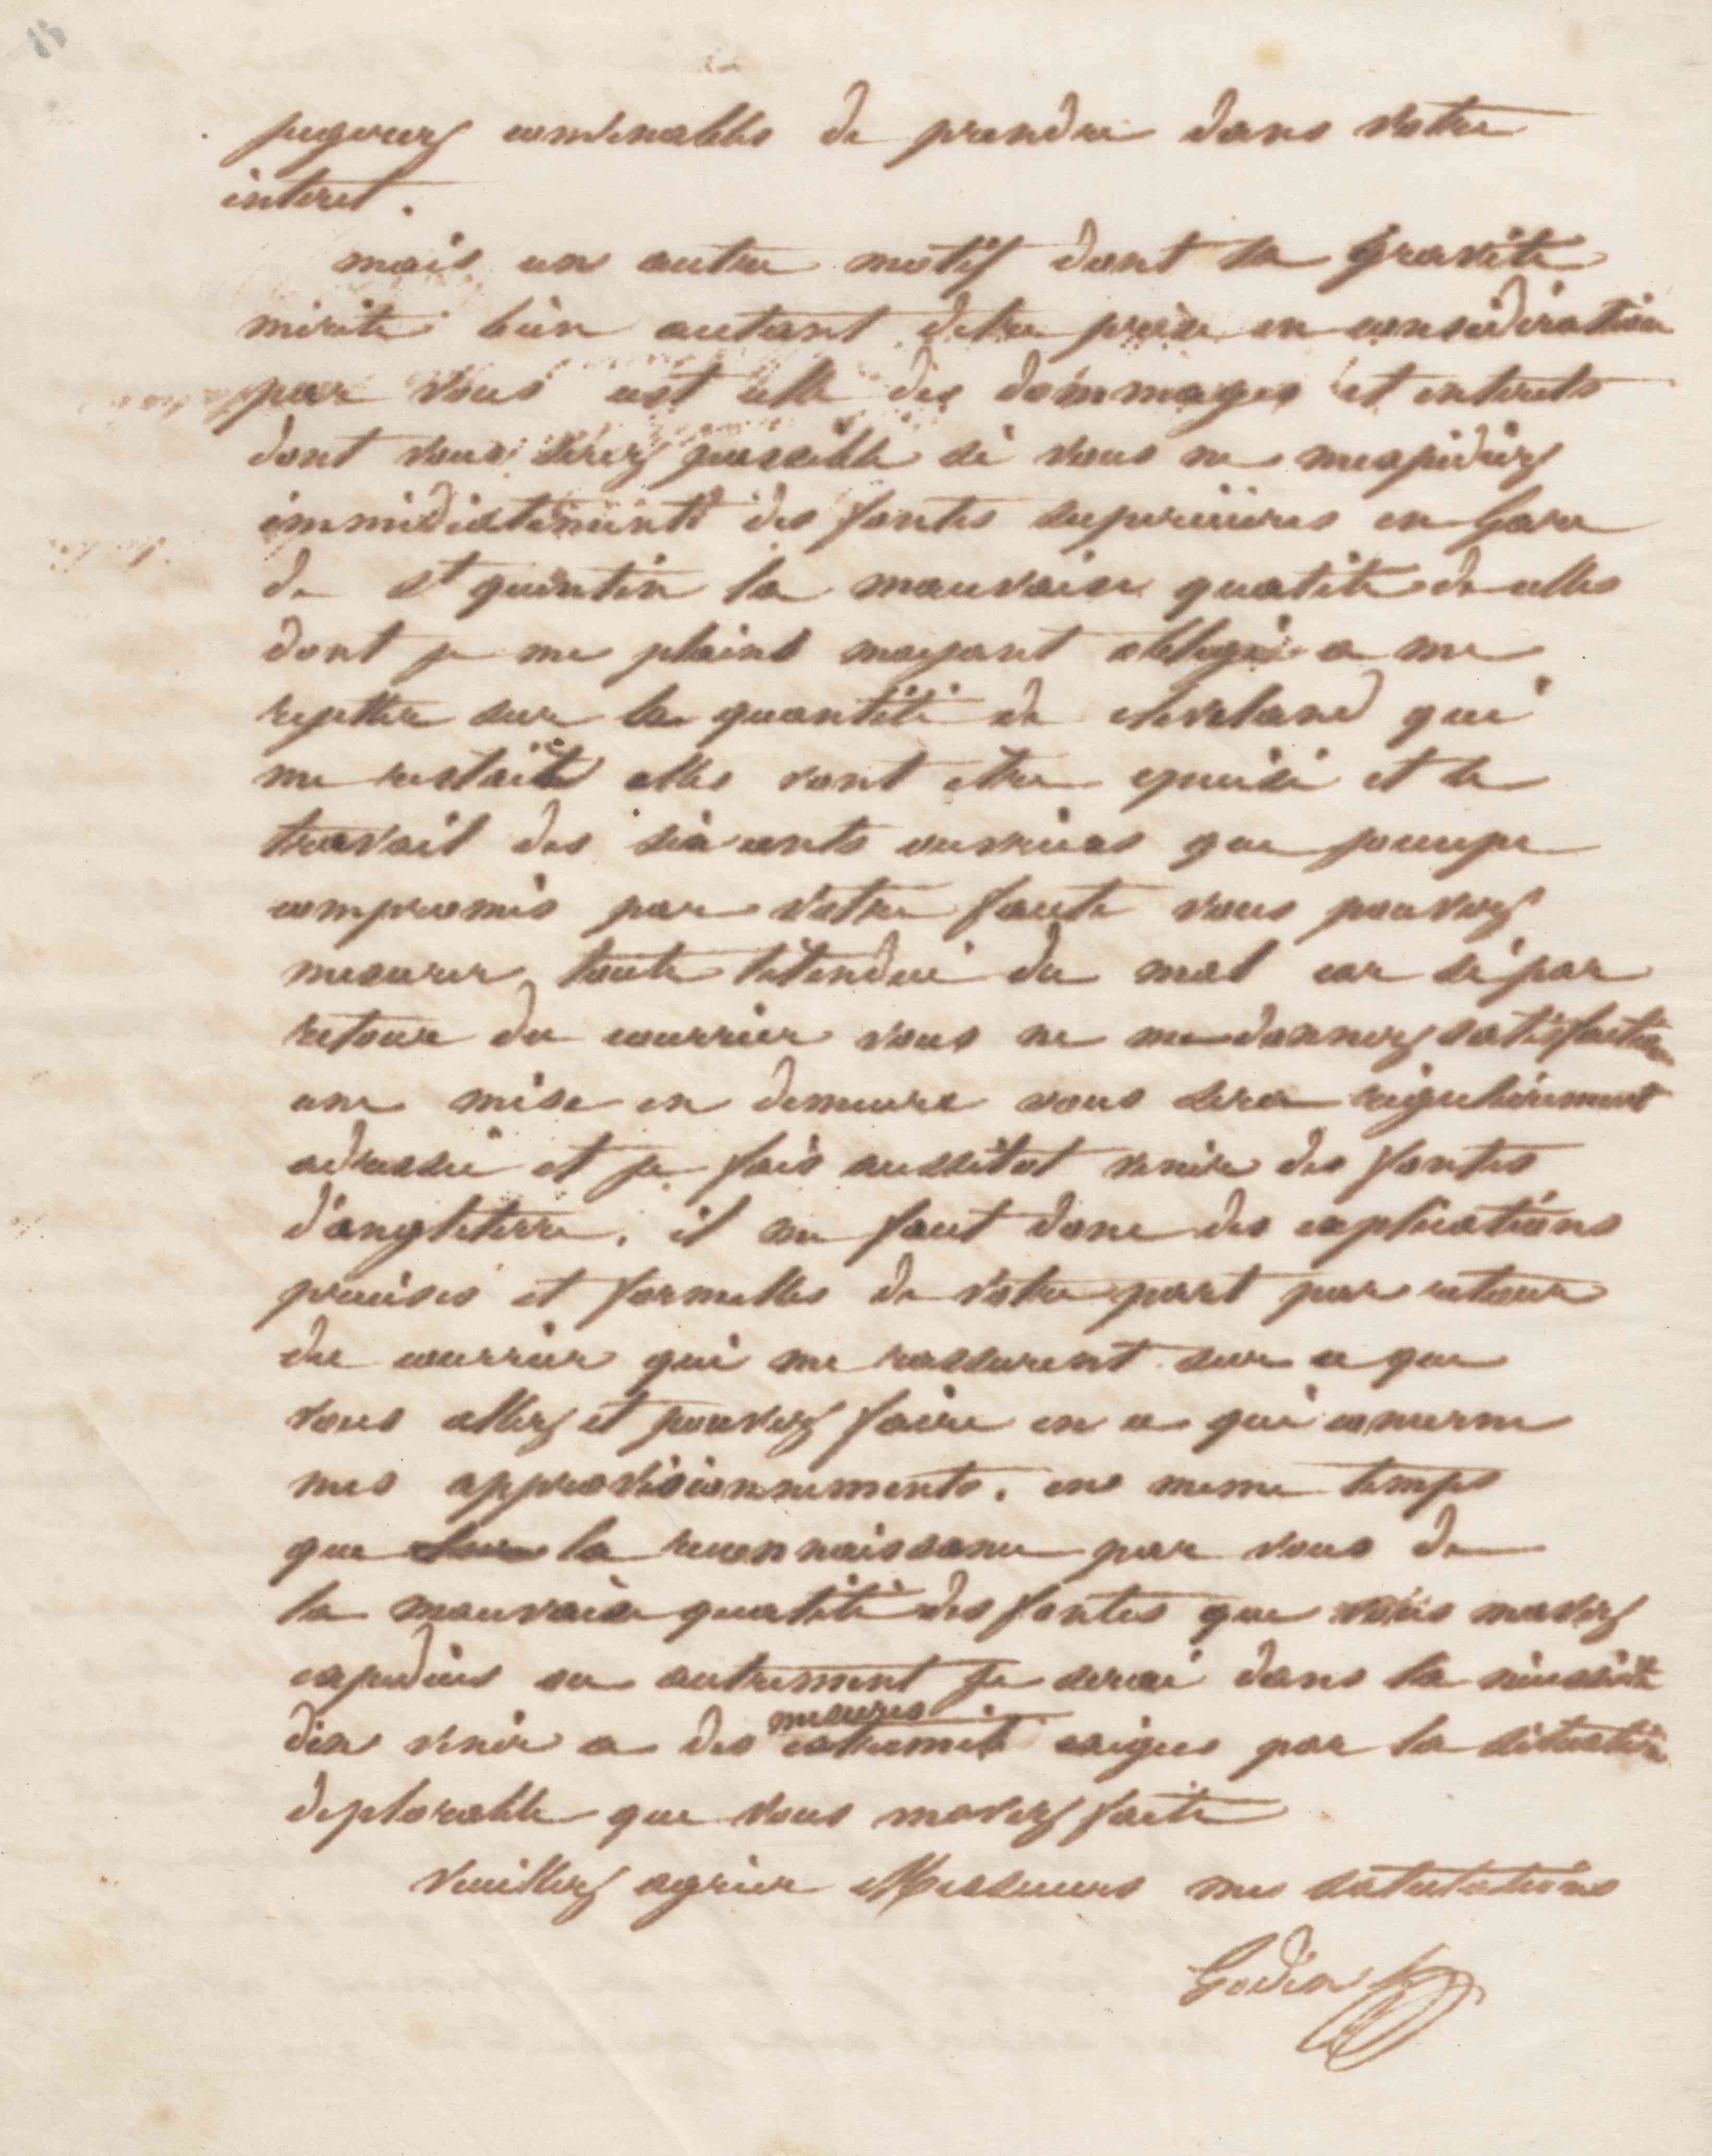 jugerez convenables de prendre dans votre
interet.
mais un autre motif dont la gravité
mérite bien autant detre prise en considération
par vous est celle des dommages et interets
dont vous serez passible si vous ne mexpediez
immédiatement des fontes superieures en Gare
de St quentin la mauvaise qualité de celles
dont je me plains mayant obligé a me
rejetter sur la quantité de cleveland qui
me restait elles vont etre epuisé et le
travail des six cents ouvriers que joccupe
compromis par votre faute vous pouvez
mesurer toute létendue du mal car si par
retour du courrier vous ne me donnez satisfaction
une mise en demeure vous sera régulièrement
adressée et je fais aussitot venir des fontes
d'angleterre. il me faut donc des explications
precises et formelles de votre part par retour
du courrier qui me rassurent sur ce que
vous allez et pouvez faire en ce qui concerne
mes approvisionnements. en meme temps
que la reconnaissance par vous de
la mauvaise qualité des fontes que vous mavez
expediées ou autrement je serai dans la nécessité
den venir a des mesures extremes exigées par la situation
deplorable que vous mavez faite
Veuillez agréer Messieurs mes salutations
Godin